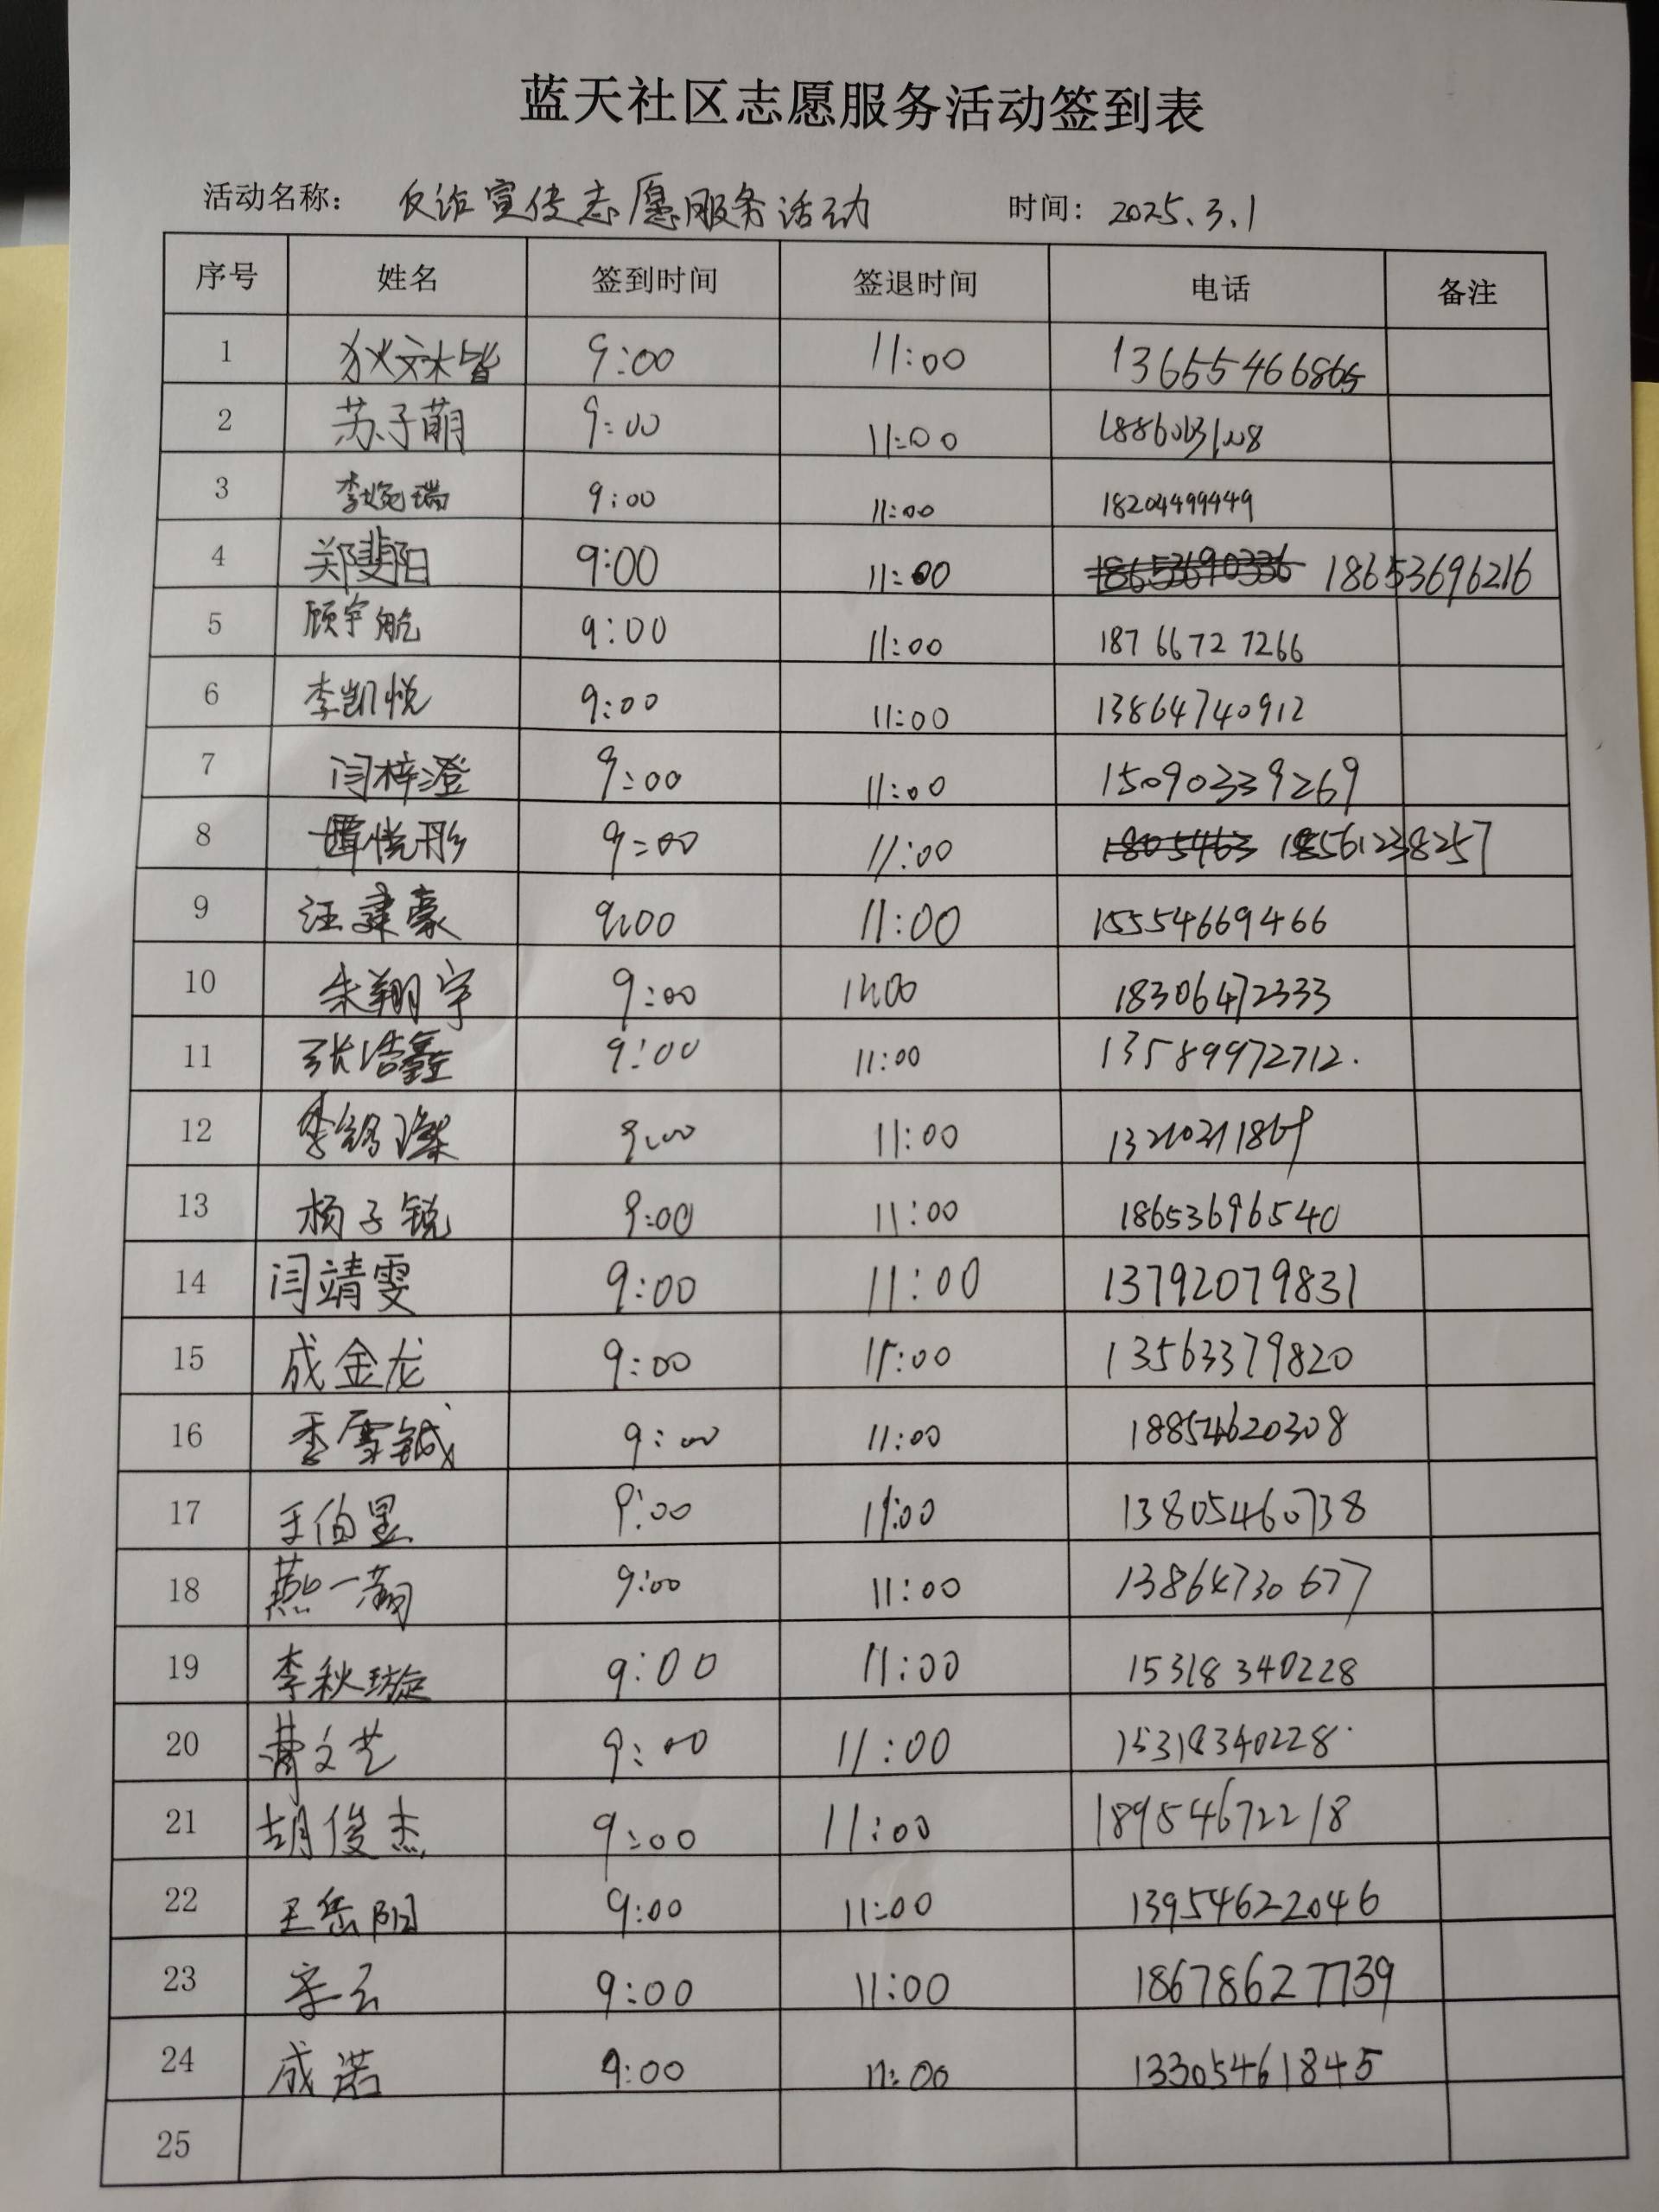 蓝天社区志愿服务活动签到表
活动名称： 反诈宣传志愿服务活动 时间：2025.3.1
序号 姓名 签到时间 签退时间 电话 备注
1 9:00 11:00 13655466865
2 苏子萌 9:00 11:00
3 李婉瑞 9:00 11:00 18204499449
4 郑斐阳 9:00 11:00 18653690336 18653696216
5 顾宇航 9:00 11:00 187 6672 7266
6 李凯悦 9:00 11:00 13864740912
7 闫梓澄 9:00 11:00 15090339269
8 悦彤 9:00 11:00 1805463 18561238257
9 汪建豪 9:00 11:00 15554669466
10 朱翔宇 9:00 11:00 18306472333
11 张浩鑫 9:00 11:00 13589972712.
12 李 9:00 11:00
13 杨子锐 9:00 11:00 18653696540
14 闫靖雯 9:00 11:00 13792079831
15 成金龙 9:00 11:00 13563379820
16 9:00 11:00 18854620308
17 王伯昱 9:00 11:00 13805460738
18 燕一 9:00 11:00 13864730677
19 李秋璇 9:00 11:00 15318340228
20 曹文艺 9:00 11:00 15318340228
21 胡俊杰 9:00 11:00 18954672218
22 王岳阳 9:00 11:00 13954622046
23 9:00 11:00 18678627739
24 成诺 9:00 11:00 13305461845
25